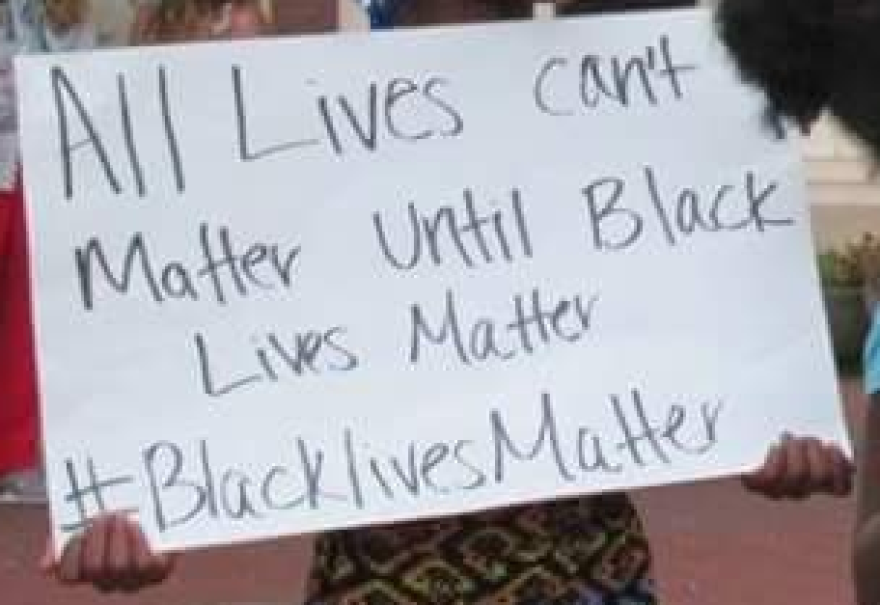 All Lives can't
Matter Until Black
Lives Matter
#BlacklivesMatter